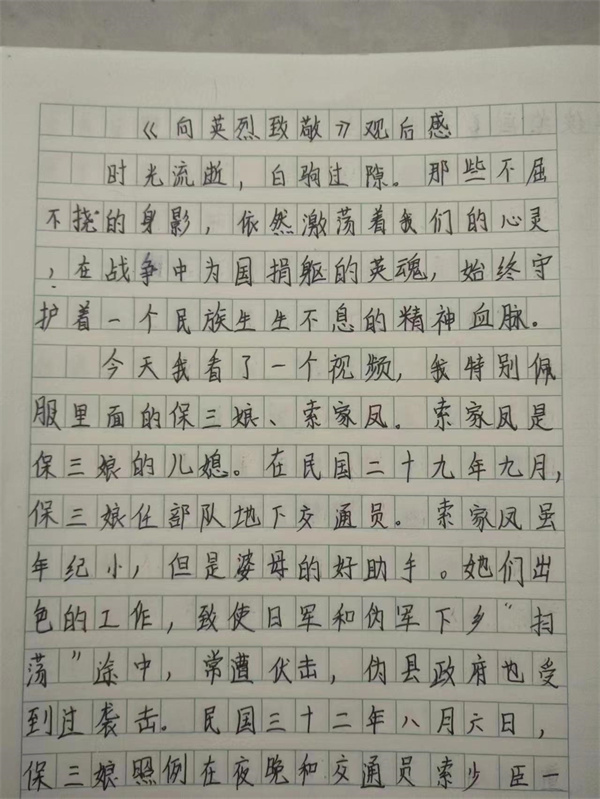 《向英烈致敬》观后感
时光流逝，白驹过隙。那些不屈
不挠的身影，依然激荡着我们的心灵
，在战争中为国捐躯的英魂，始终守
护着一个民族生生不息的精神血脉。
今天我看了一个视频，我特别佩
服里面的保三娘、索家凤。索家凤是
保三娘的儿媳。在民国二十九年九月，
保三娘任部队地下交通员。索家凤虽
年纪小，但是婆母的好助手。她们出
色的工作，致使日军和伪军下乡“扫
荡”途中，常遭伏击，伪县政府也受
到过袭击。民国三十二年八月六日，
保三娘照例在夜晚和交通员索少臣一